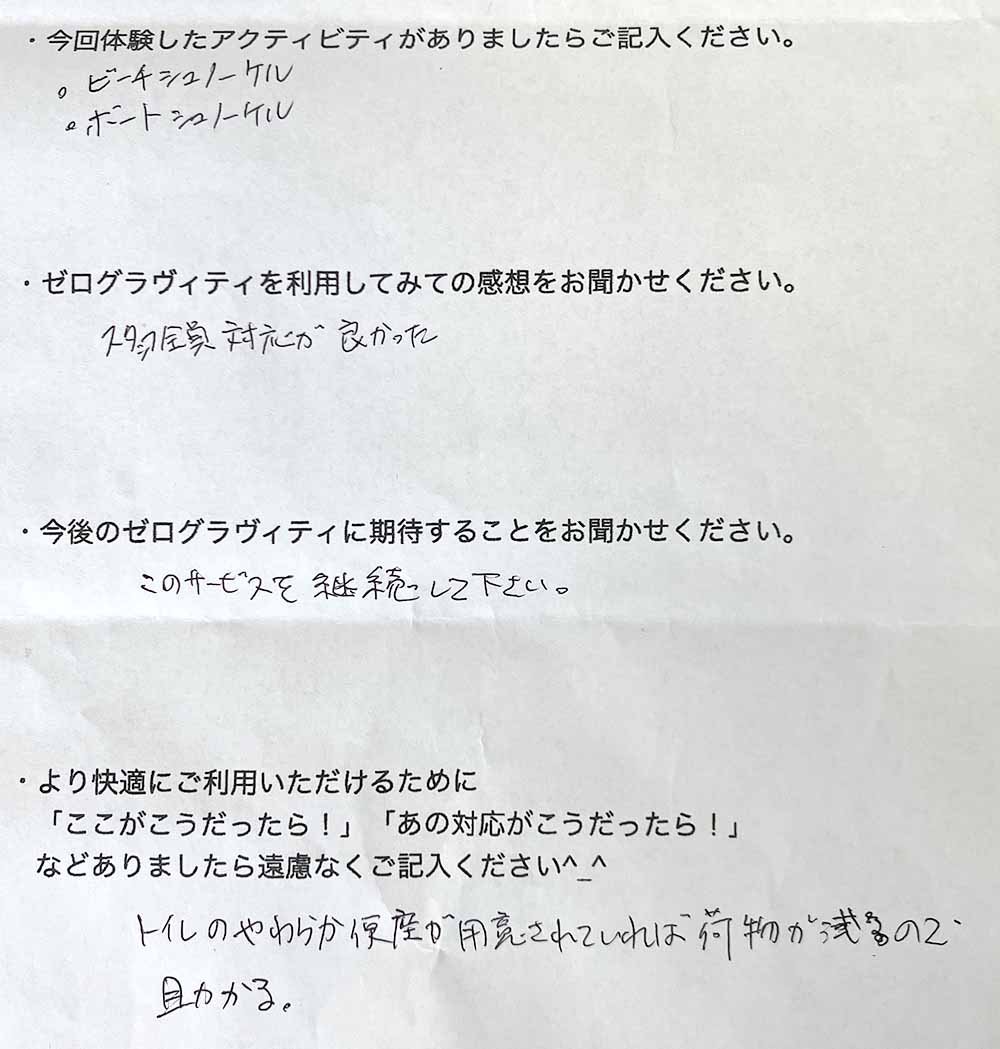 ・今回体験したアクティビティがありましたらご記入ください。
。ビーチシュノーケル
。ボートシュノーケル
・ゼログラヴィティを利用してみての感想をお聞かせください。
スタッフ全員対応が良かった
・今後のゼログラヴィティに期待することをお聞かせください。
このサービスを継続して下さい。
・より快適にご利用いただけるために
「ここがこうだったら！」「あの対応がこうだったら！」
などありましたら遠慮なくご記入ください^_^
トイレのやわらか便座が用意されていれば荷物が減るので
助かる。